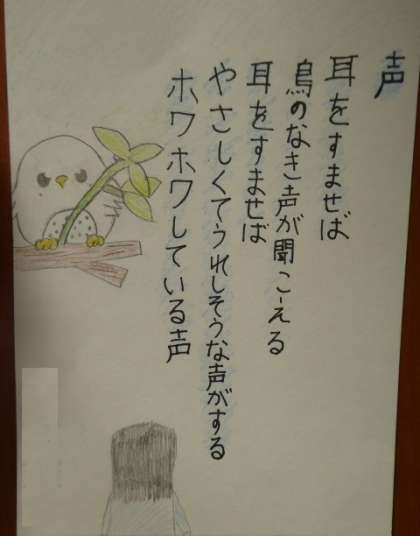 声
耳をすませば
鳥のなき声が聞こえる
耳をすませば
やさしくてうれしそうな声がする
ホワホワしている声